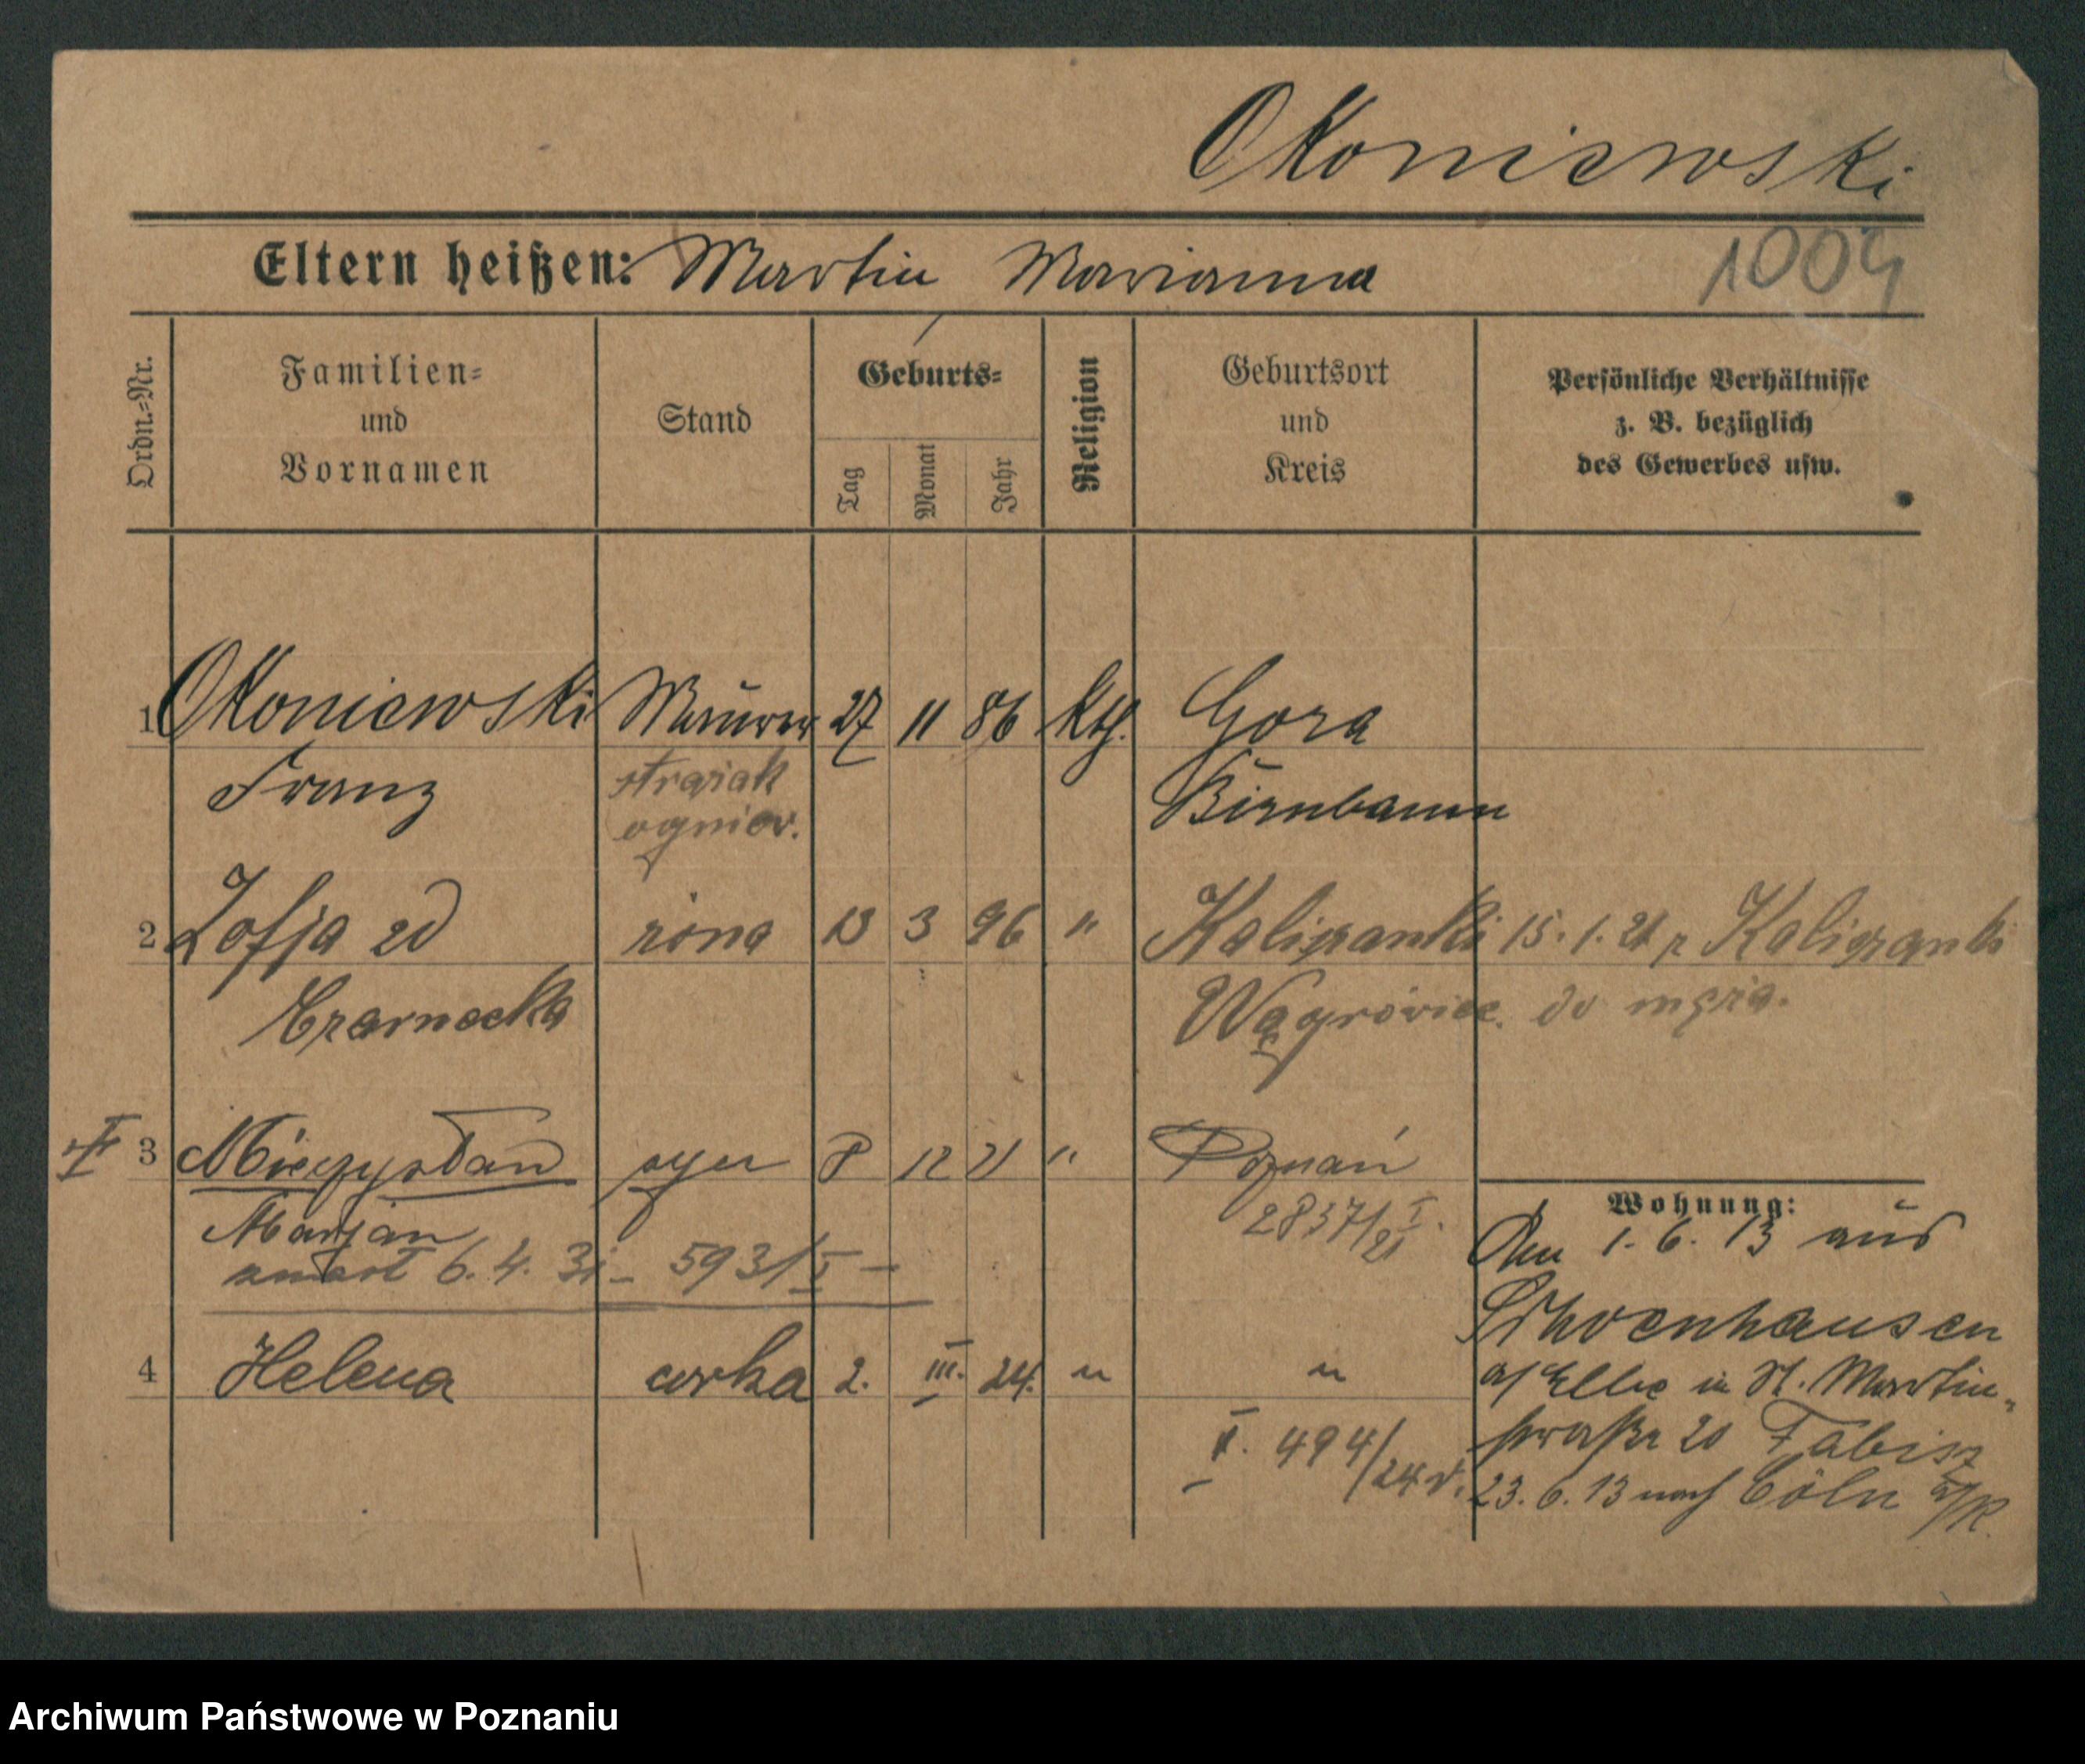 Okoniewski
Eltern heißen: Martin Marianna
1004
Ordn.-Nr.
Familien-
und
Vornamen
Stand
Geburts-
Tag
Monat
Jahr
Religion
Geburtsort
und
Kreis
Persönliche Verhältnisse
z. B. bezüglich
des Gewerbes usw.
1 Okoniewski Maurer 27 11 86 kth. Gora
Franz strażak Birnbaum
ogniow.
2 Zofja zd żona 13 3 96 " Kaliszanki 15. 1. 21 z Kaliszanki
Czarnecka Wągrówiec. do męża.
3 Mieczysław syn 8 12 21 " Poznań
Marjan 2837/21 I.
zmarł 6. 4. 31 - 593/I -
4 Helena corka 2. III. 24. " "
II. 494/24 r.
Wohnung:
Am 1. 6. 13 aus
Schoenhausen
a/ Elbe in St. Martin-
straße 20 Fabisz
23. 6. 13 nach Cöln a/R.
Archiwum Państwowe w Poznaniu